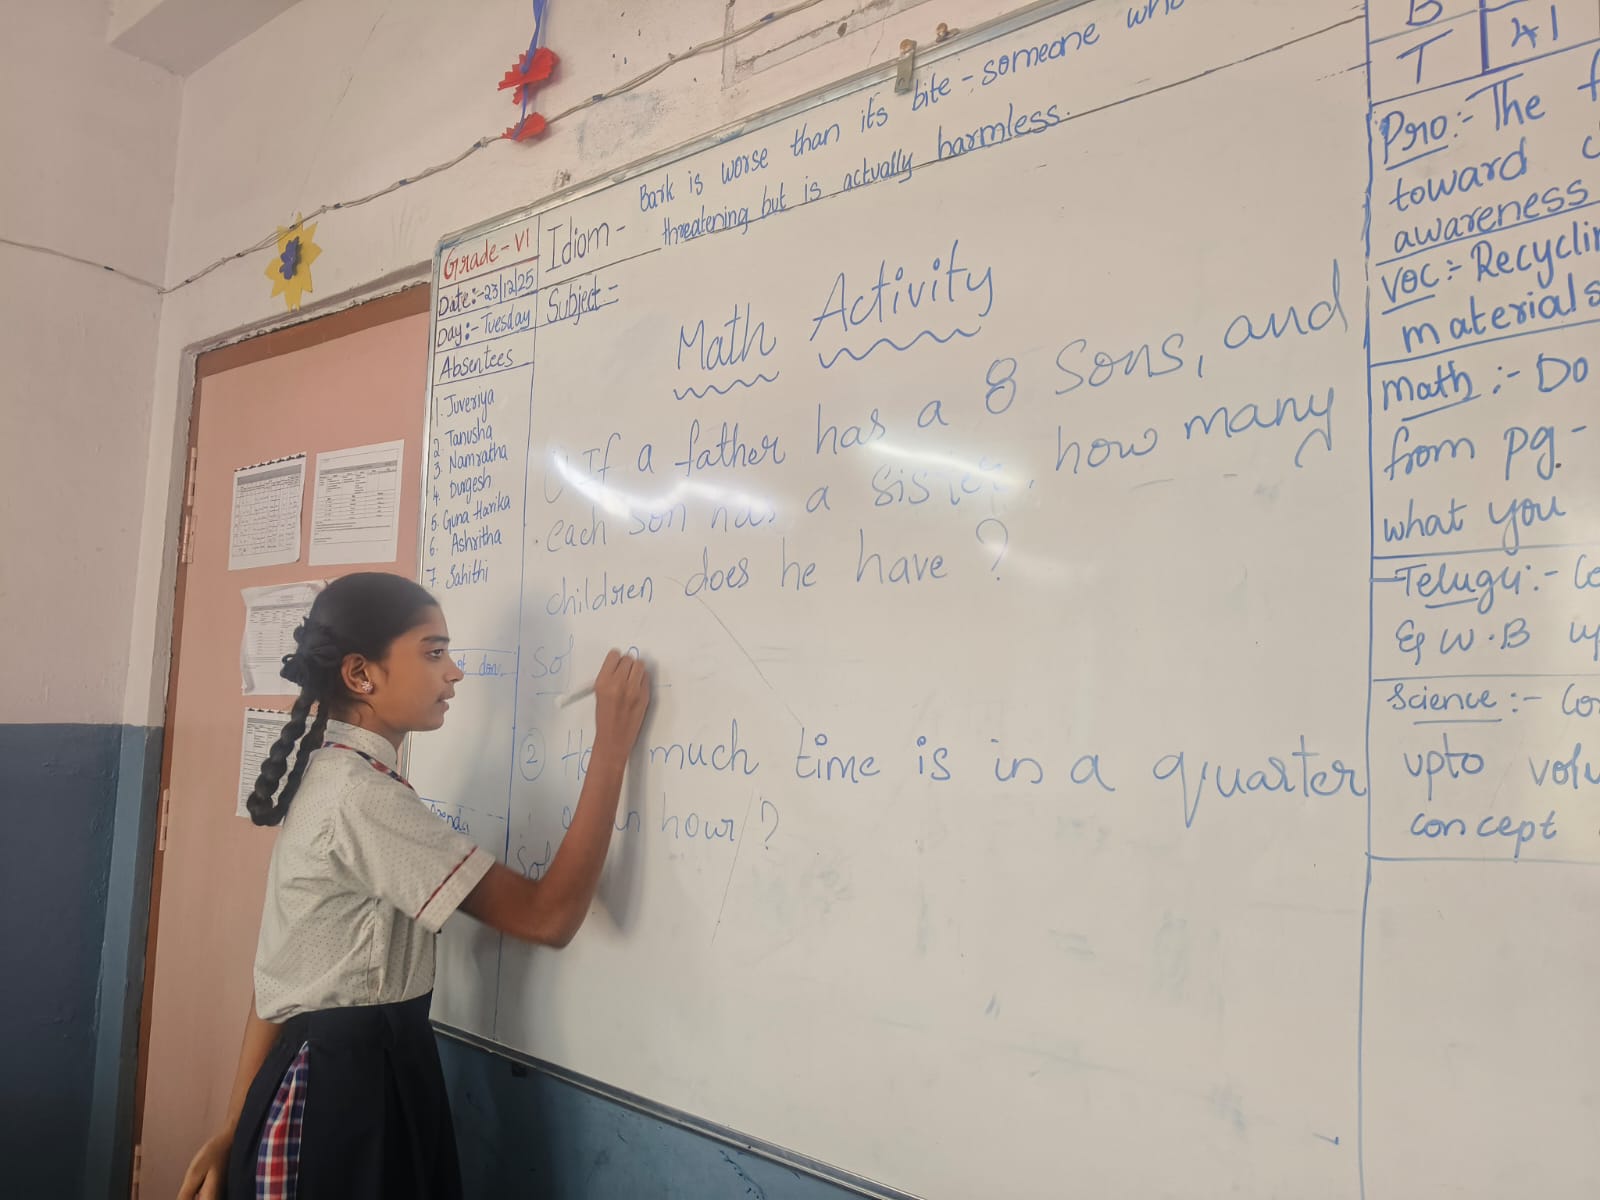 Grade-VI
Date:-23/12/25
Day:-Tuesday
Absentees
1. Juveriya
2 Tanusha
3 Namratha
4. Durgesh
5. Guna Harika
6. Ashritha
7. Sahithi
Idiom- Bark is worse than its bite-someone who
threatening but is actually harmless.
Subject:-
Math Activity
If a father has a 8 Sons, and
each son has a sister, how many
children does he have ?
Sol
② How much time is in a quarter
hour?
Sol
T 41
Pro:- The
toward
awareness
VOC:- Recyclin
materials
Math:- Do
from pg-
what you
Telugu:- Co
& W.B up
Science:- Co
upto volu
concept